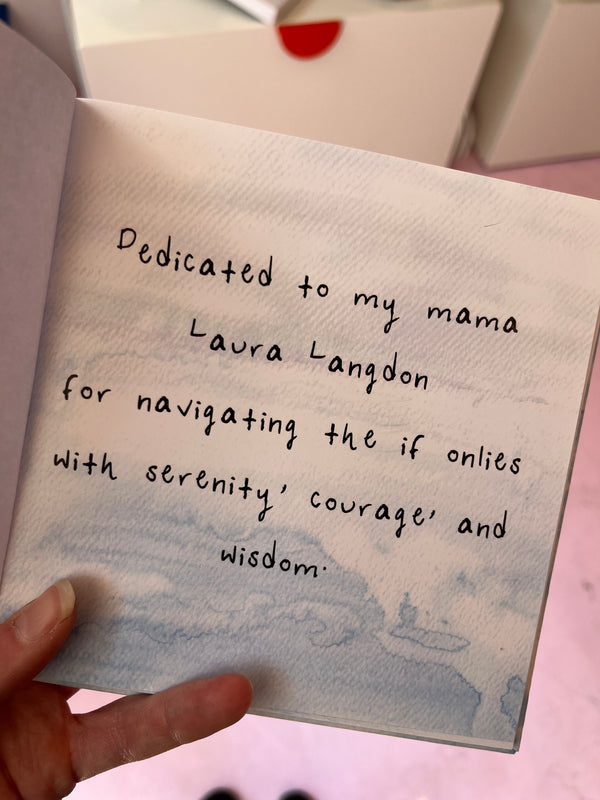 Dedicated to my mama
Laura Langdon
for navigating the if onlies
with serenity, courage, and
wisdom.